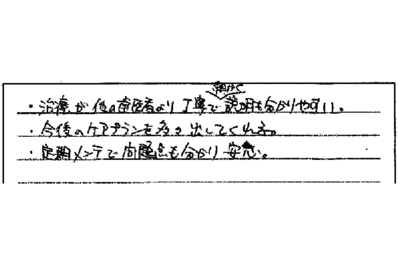 ・治療が他の歯医者より丁寧で細かく説明も分かりやすい。
・今後のケアプランを多々出してくれる。
・定期メンテで問題点も分かり安心。